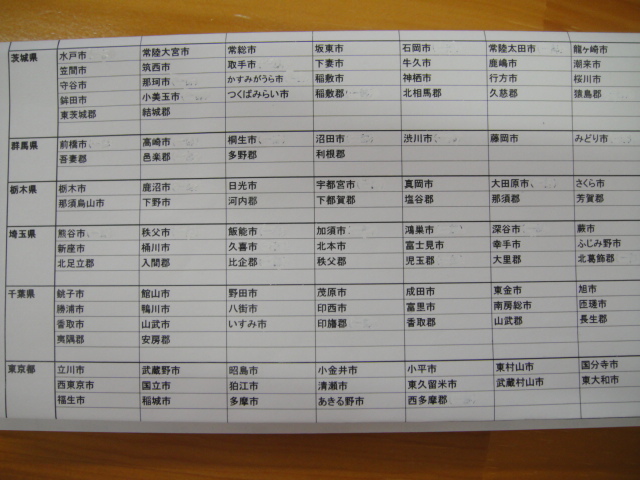 茨城県 水戸市 常陸大宮市 常総市 坂東市 石岡市 常陸太田市 龍ヶ崎市
笠間市 筑西市 取手市 下妻市 牛久市 鹿嶋市 潮来市
守谷市 那珂市 かすみがうら市 稲敷市 神栖市 行方市 桜川市
鉾田市 小美玉市 つくばみらい市 稲敷郡 北相馬郡 久慈郡 猿島郡
東茨城郡 結城郡
群馬県 前橋市 高崎市 桐生市 沼田市 渋川市 藤岡市 みどり市
吾妻郡 邑楽郡 多野郡 利根郡
栃木県 栃木市 鹿沼市 日光市 宇都宮市 真岡市 大田原市 さくら市
那須烏山市 下野市 河内郡 下都賀郡 塩谷郡 那須郡 芳賀郡
埼玉県 熊谷市 秩父市 飯能市 加須市 鴻巣市 深谷市 蕨市
新座市 桶川市 久喜市 北本市 富士見市 幸手市 ふじみ野市
北足立郡 入間郡 比企郡 秩父郡 児玉郡 大里郡 北葛飾郡
千葉県 銚子市 館山市 野田市 茂原市 成田市 東金市 旭市
勝浦市 鴨川市 八街市 印西市 富里市 南房総市 匝瑳市
香取市 山武市 いすみ市 印旛郡 香取郡 山武郡 長生郡
夷隅郡 安房郡
東京都 立川市 武蔵野市 昭島市 小金井市 小平市 東村山市 国分寺市
西東京市 国立市 狛江市 清瀬市 東久留米市 武蔵村山市 東大和市
福生市 稲城市 多摩市 あきる野市 西多摩郡